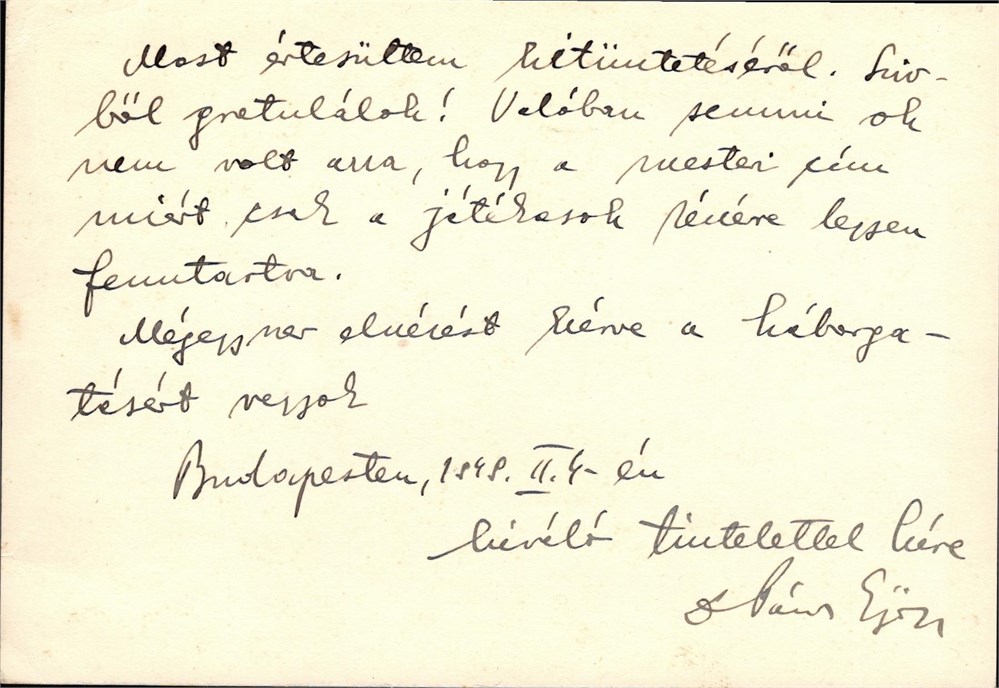 Most értesültem kitüntetéséről. Szív-
ből gratulálok! Valóban semmi ok
nem volt arra, hogy a mesteri cím
miért csak a játékosok részére legyen
fenntartva.
Mégegyszer elnézést kérve a háborga-
tásért vagyok
Budapesten, 1948. II. 4-én
kiváló tisztelettel híve
Dr